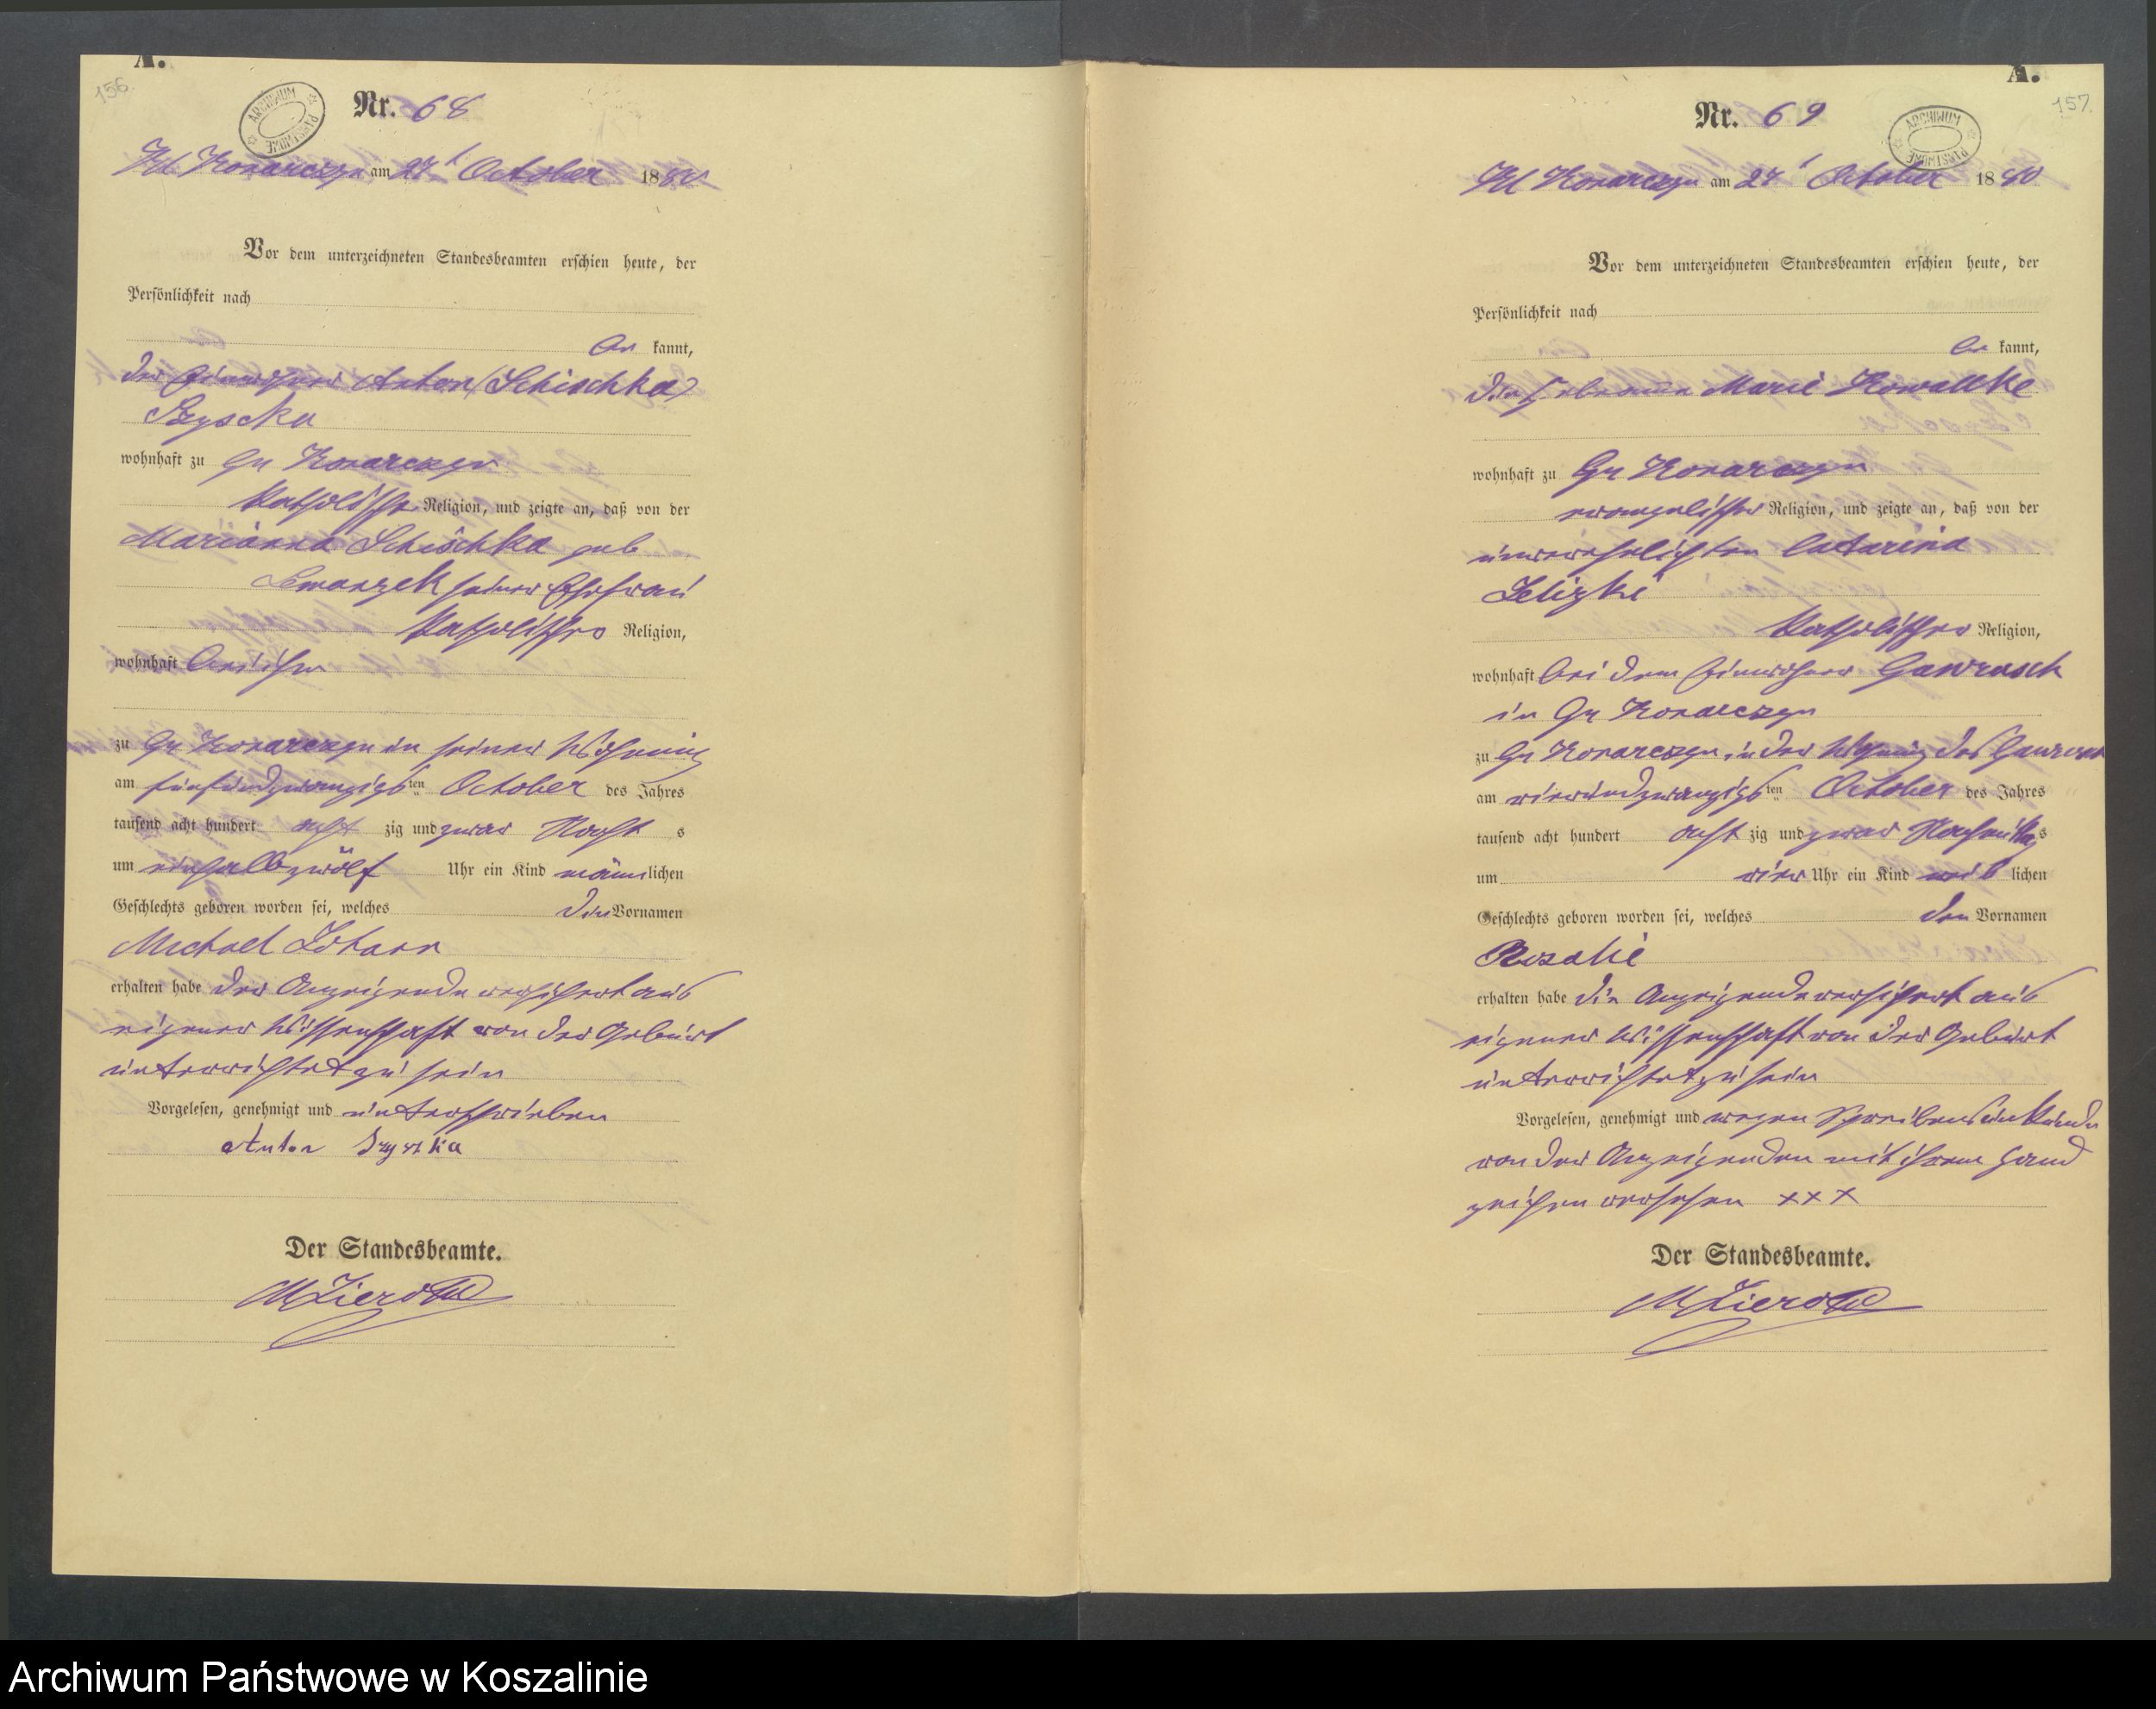 A.
156.
ARCHIWUM PAŃSTWOWE
Nr. 68
Kl. Konarczyn am 27 October 1880
Vor dem unterzeichneten Standesbeamten erschien heute, der
Persönlichkeit nach
be kannt,
der Einwohner Anton (Schischka)
wohnhaft zu Gr Konarczyn
katholischer Religion, und zeigte an, daß von der
Marianna Schischka geb
seiner Ehefrau
katholischer Religion,
wohnhaft bei ihm
zu Gr Konarczyn in seiner Wohnung
am fünfundzwanzigsten October des Jahres
tausend acht hundert acht zig und zwar Nacht s
um einhalbzwölf Uhr ein Kind männlichen
Geschlechts geboren worden sei, welches die Vornamen
Michael Johann
erhalten habe der Anzeigende versichert aus
eigener Wissenschaft von der Geburt
unterrichtet zu sein
Vorgelesen, genehmigt und unterschrieben
Anton Szyszka
Der Standesbeamte.
A.
157.
ARCHIWUM PAŃSTWOWE
Nr. 69
Kl Konarczyn am 27 October 1880
Vor dem unterzeichneten Standesbeamten erschien heute, der
Persönlichkeit nach
be kannt,
die Hebamme Marie Kowalke
wohnhaft zu Gr Konarczyn
evangelischer Religion, und zeigte an, daß von der
unverehelichten Catarina
katholischer Religion,
wohnhaft bei dem Einwohner Gawrosch
in Gr Konarczyn
zu Gr Konarczyn in der Wohnung des Gawrosch
am vierundzwanzigsten October des Jahres
tausend acht hundert acht zig und zwar Nachmittags
um vier Uhr ein Kind weib lichen
Geschlechts geboren worden sei, welches den Vornamen
Rosalie
erhalten habe die Anzeigende versichert aus
eigener Wissenschaft von der Geburt
unterrichtet zu sein
Vorgelesen, genehmigt und wegen Schreibensunkunde
von der Anzeigenden mit ihrem Hand
zeichen versehen xxx
Der Standesbeamte.
Archiwum Państwowe w Koszalinie